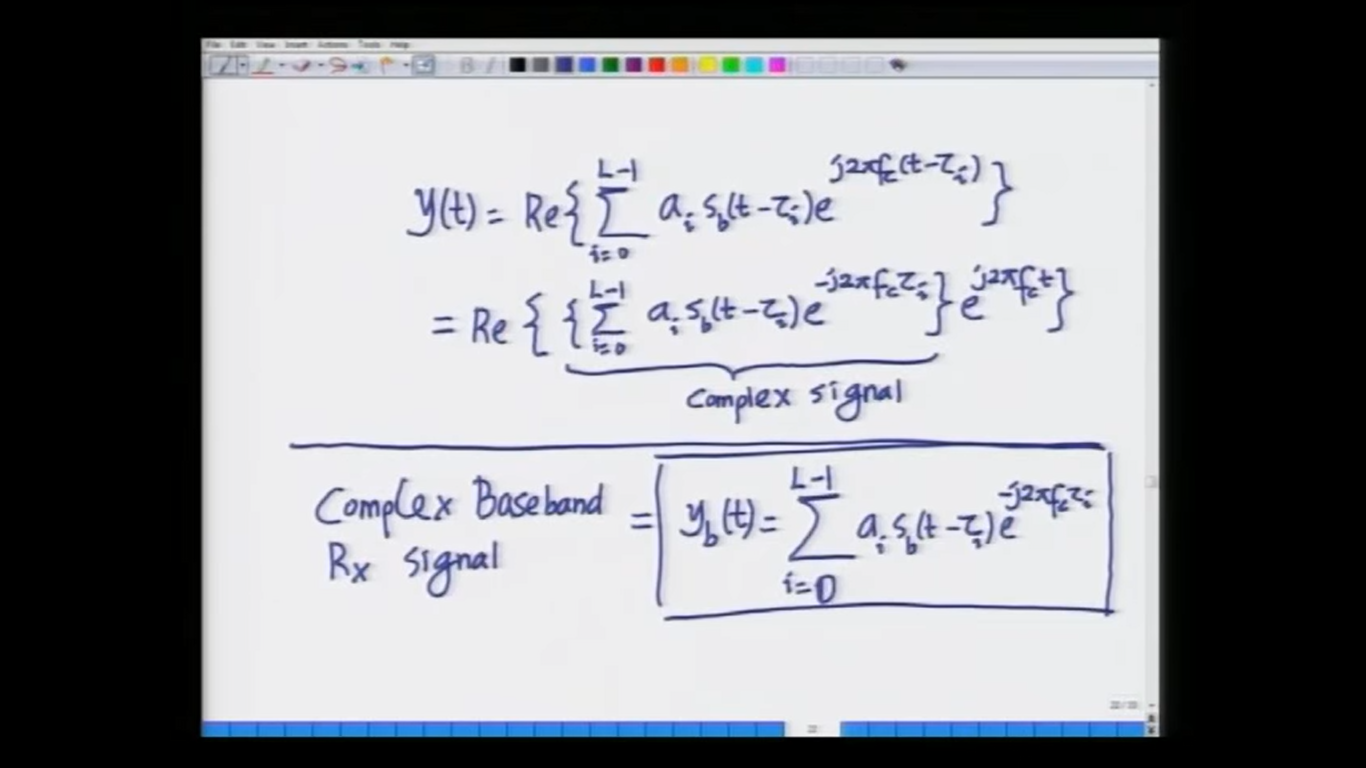 File Edit View Insert Actions Tools Help
y(t) = Re{ \sum_{i=0}^{L-1} a_i s_b(t-τ_i) e^{j2πf_c(t-τ_i)} }
= Re { { \sum_{i=0}^{L-1} a_i s_b(t-τ_i) e^{-j2πf_cτ_i} } e^{j2πf_ct} }
Complex signal
Complex Baseband Rx signal = y_b(t) = \sum_{i=0}^{L-1} a_i s_b(t-τ_i) e^{-j2πf_cτ_i}